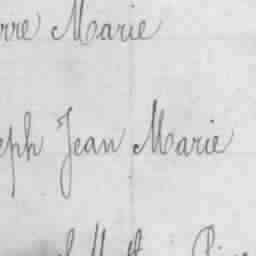 rre Marie
eph Jean Marie